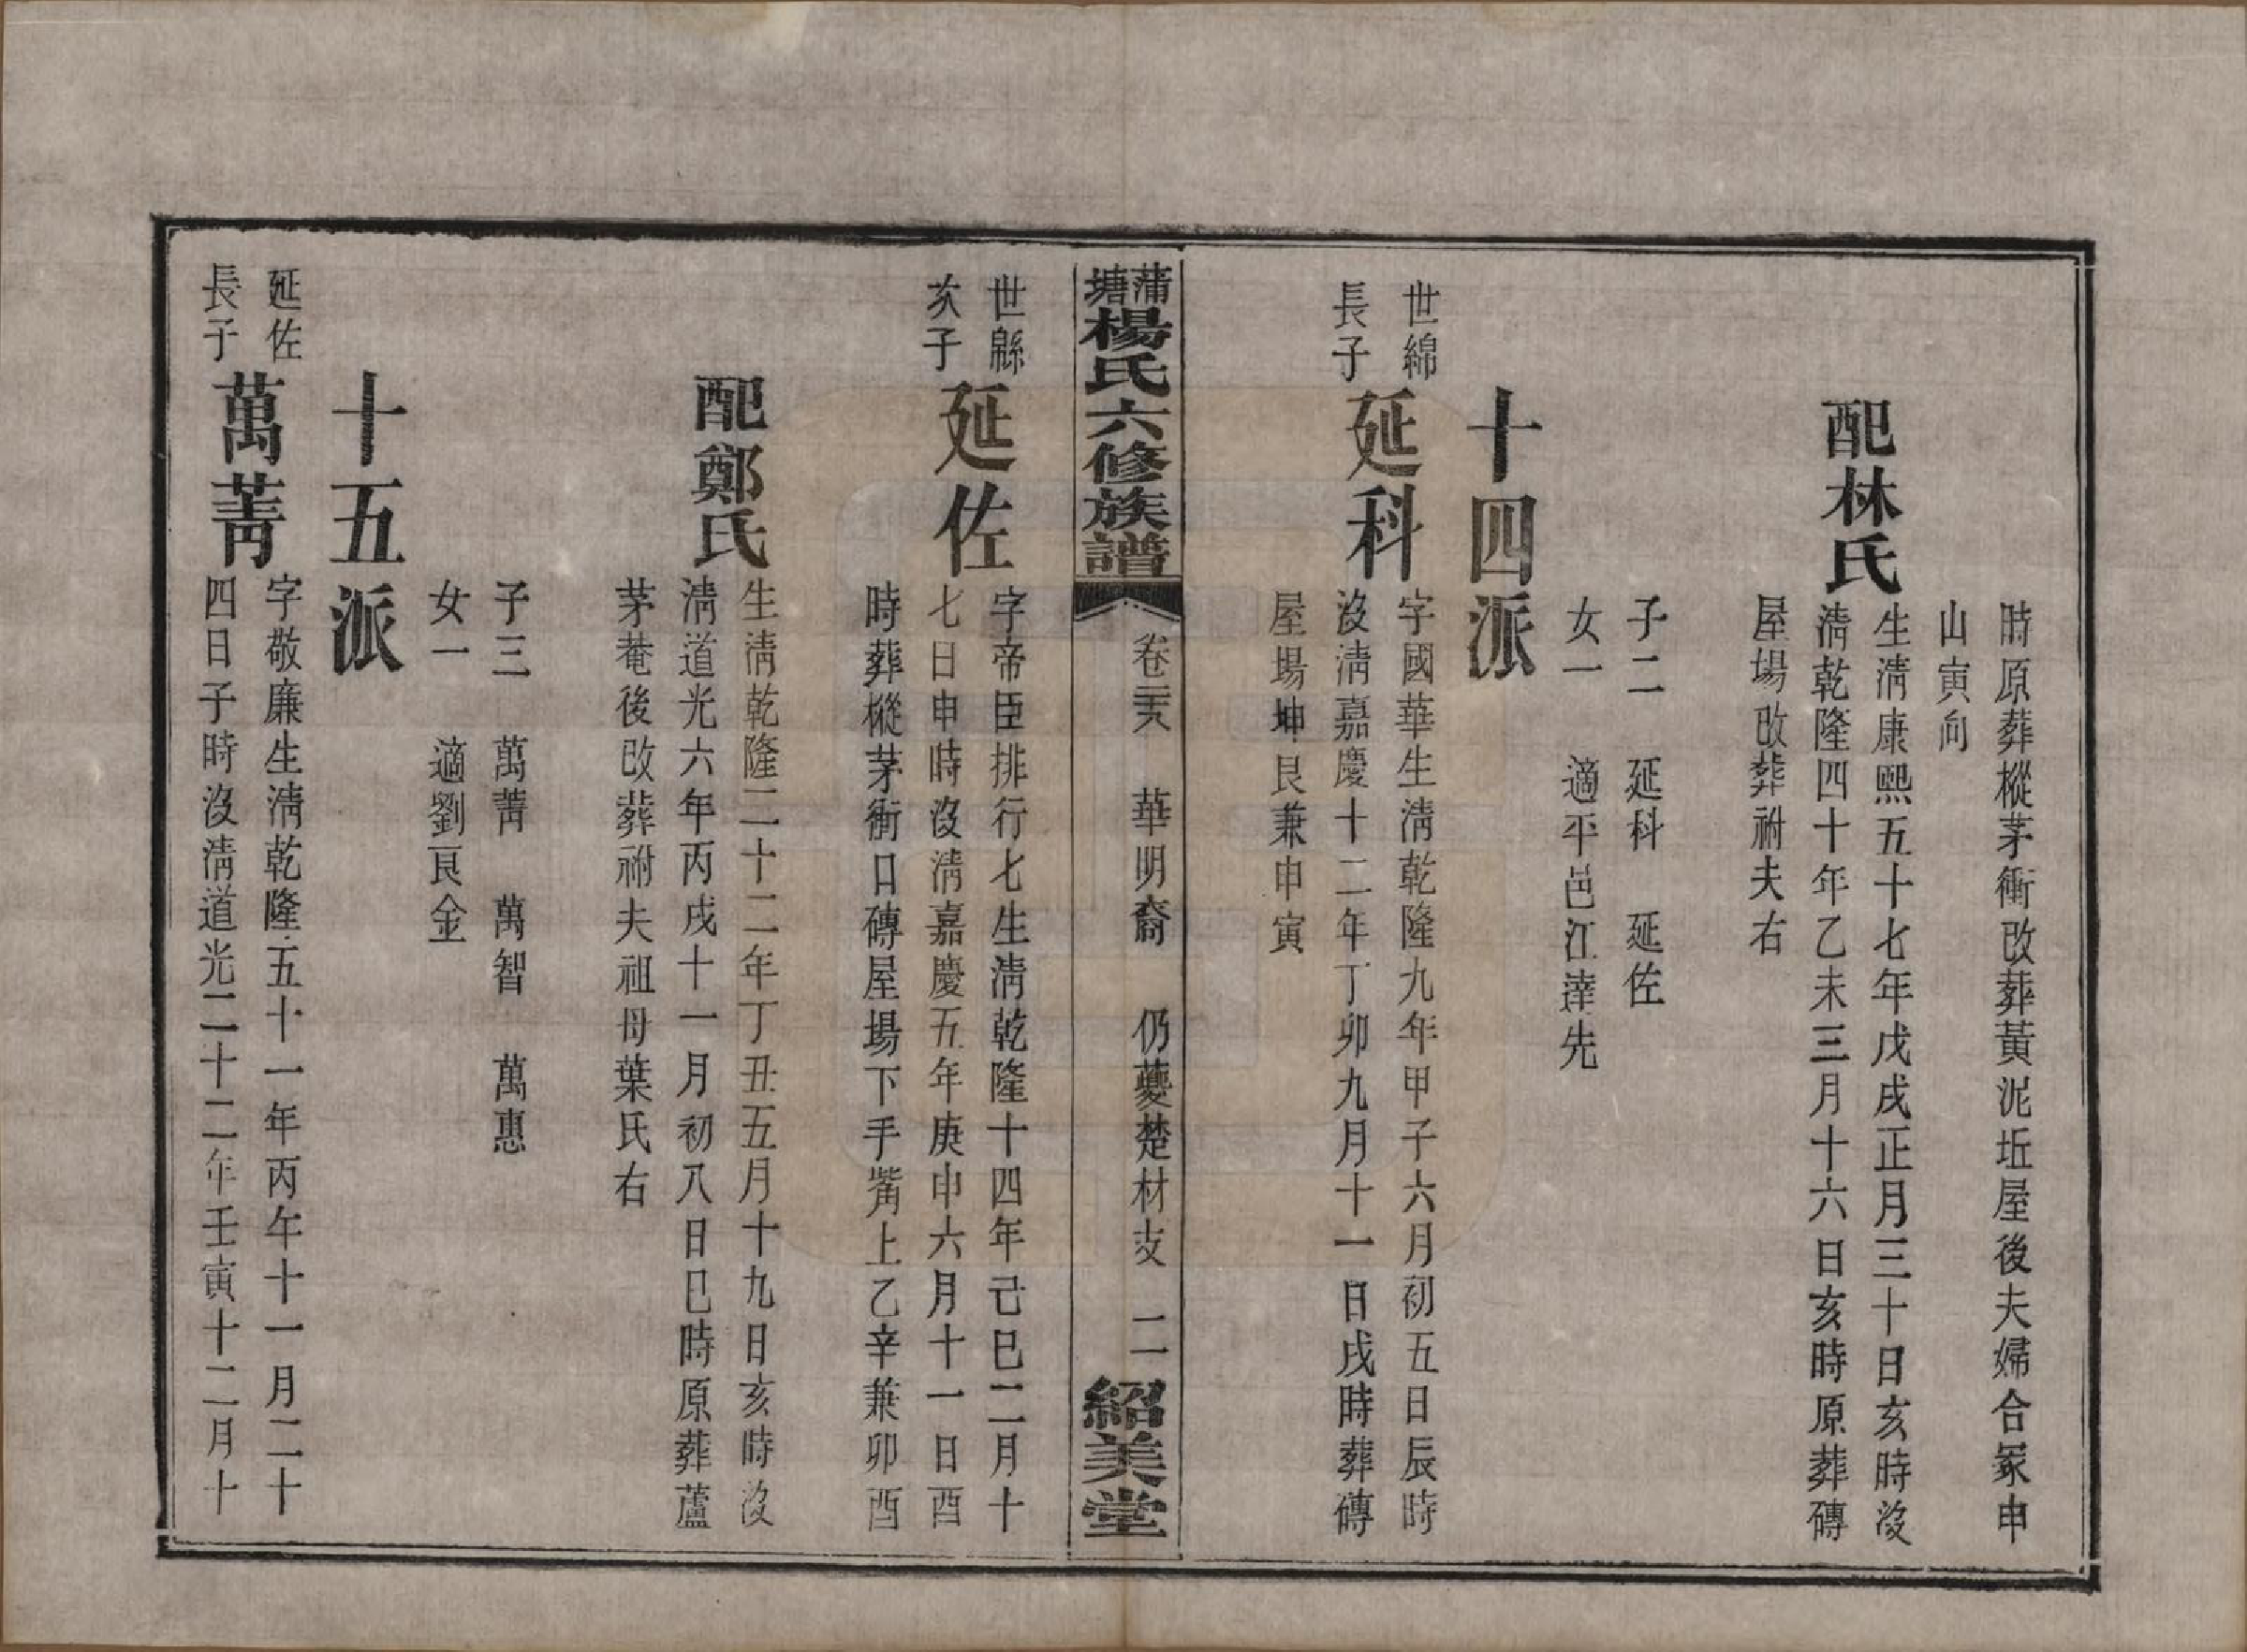 時原葬樅茅衝改葬黃泥坵屋後夫婦合冢申
山寅向
配林氏
生淸康熙五十七年戊戌正月三十日亥時沒
淸乾隆四十年乙未三月十六日亥時原葬磚
屋場改葬祔夫右
子二 延科 延佐
女一 適平邑江達先
十四派
世綿
長子
延科
字國華生淸乾隆九年甲子六月初五日辰時
沒淸嘉慶十二年丁卯九月十一日戌時葬磚
屋場坤艮兼申寅
蒲塘楊氏六修族譜
卷 華明裔 仍夔楚材支 二
紹美堂
世緜
次子
延佐
字帝臣排行七生淸乾隆十四年己巳二月十
七日申時沒淸嘉慶五年庚申六月十一日酉
時葬樅茅衝口磚屋場下手嘴上乙辛兼卯酉
配鄭氏
生淸乾隆二十二年丁丑五月十九日亥時沒
淸道光六年丙戌十一月初八日巳時原葬蘆
茅菴後改葬祔夫祖母葉氏右
子三 萬菁 萬智 萬惠
女一 適劉良金
十五派
延佐
長子
萬菁
字敬廉生淸乾隆五十一年丙午十一月二十
四日子時沒淸道光二十二年壬寅十二月十